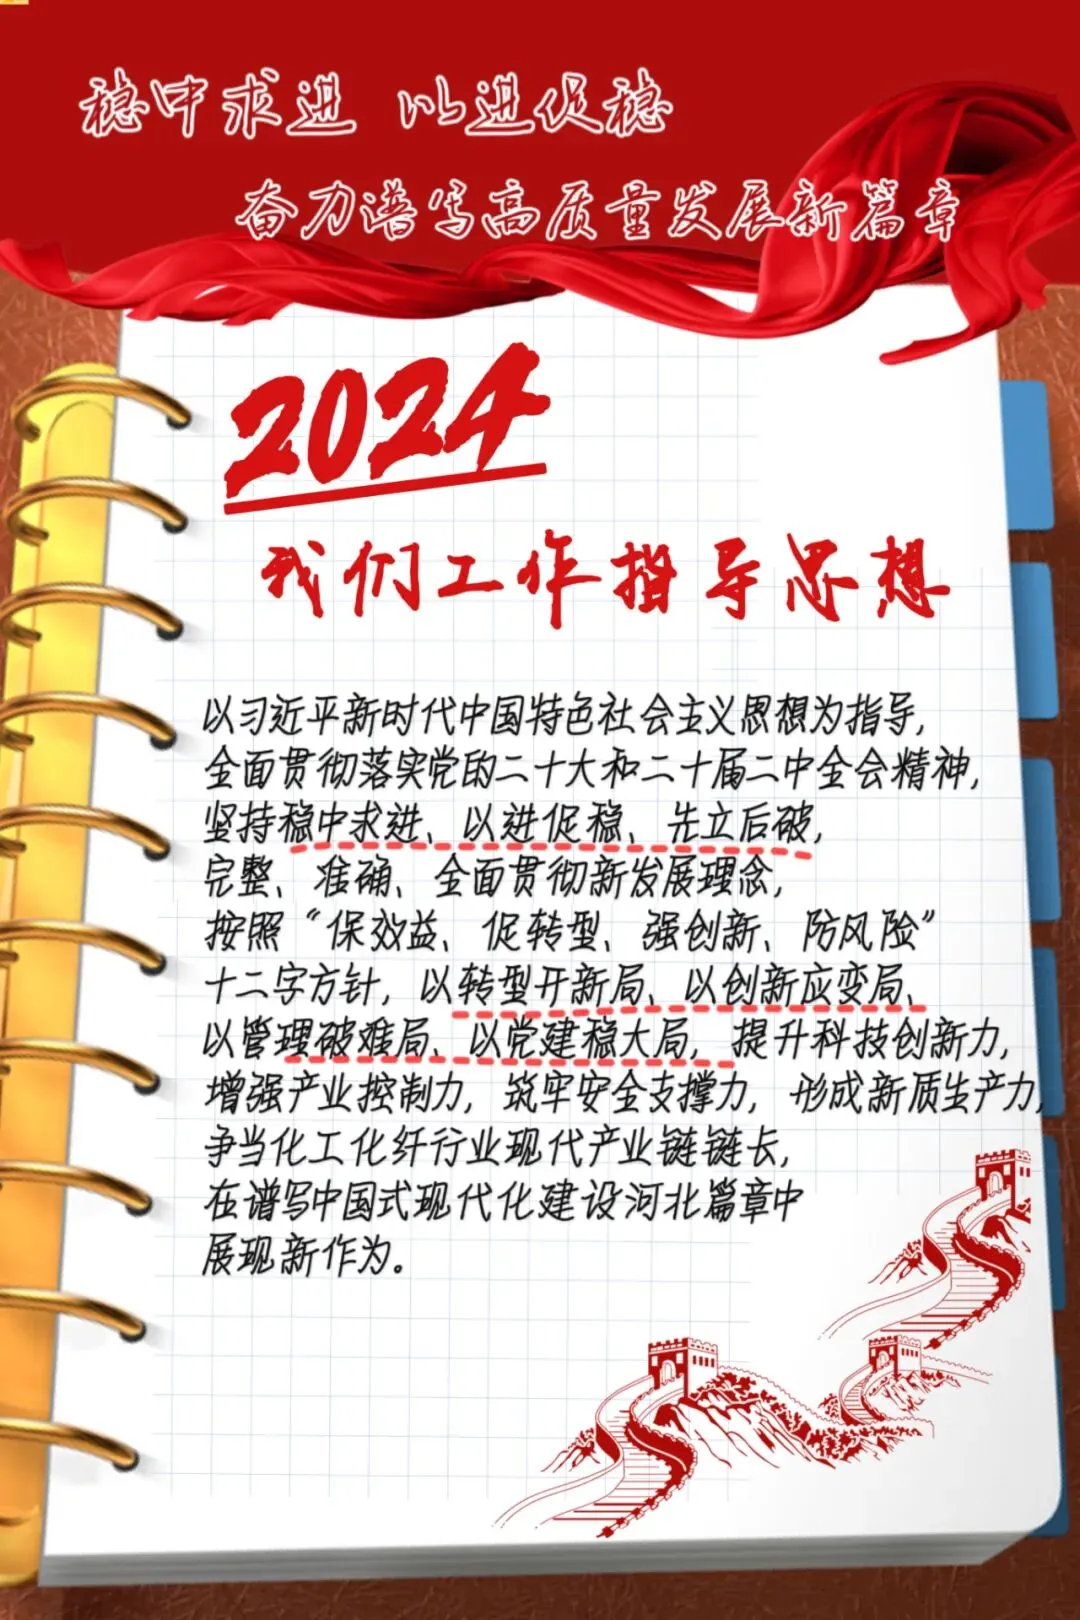 稳中求进 以进促稳
奋力谱写高质量发展新篇章
2024
我们工作指导思想
以习近平新时代中国特色社会主义思想为指导，
全面贯彻落实党的二十大和二十届二中全会精神，
坚持稳中求进、以进促稳、先立后破，
完整、准确、全面贯彻新发展理念，
按照“保效益、促转型、强创新、防风险”
十二字方针，以转型开新局、以创新应变局、
以管理破难局、以党建稳大局，提升科技创新力，
增强产业控制力，筑牢安全支撑力，形成新质生产力，
争当化工化纤行业现代产业链链长，
在谱写中国式现代化建设河北篇章中
展现新作为。